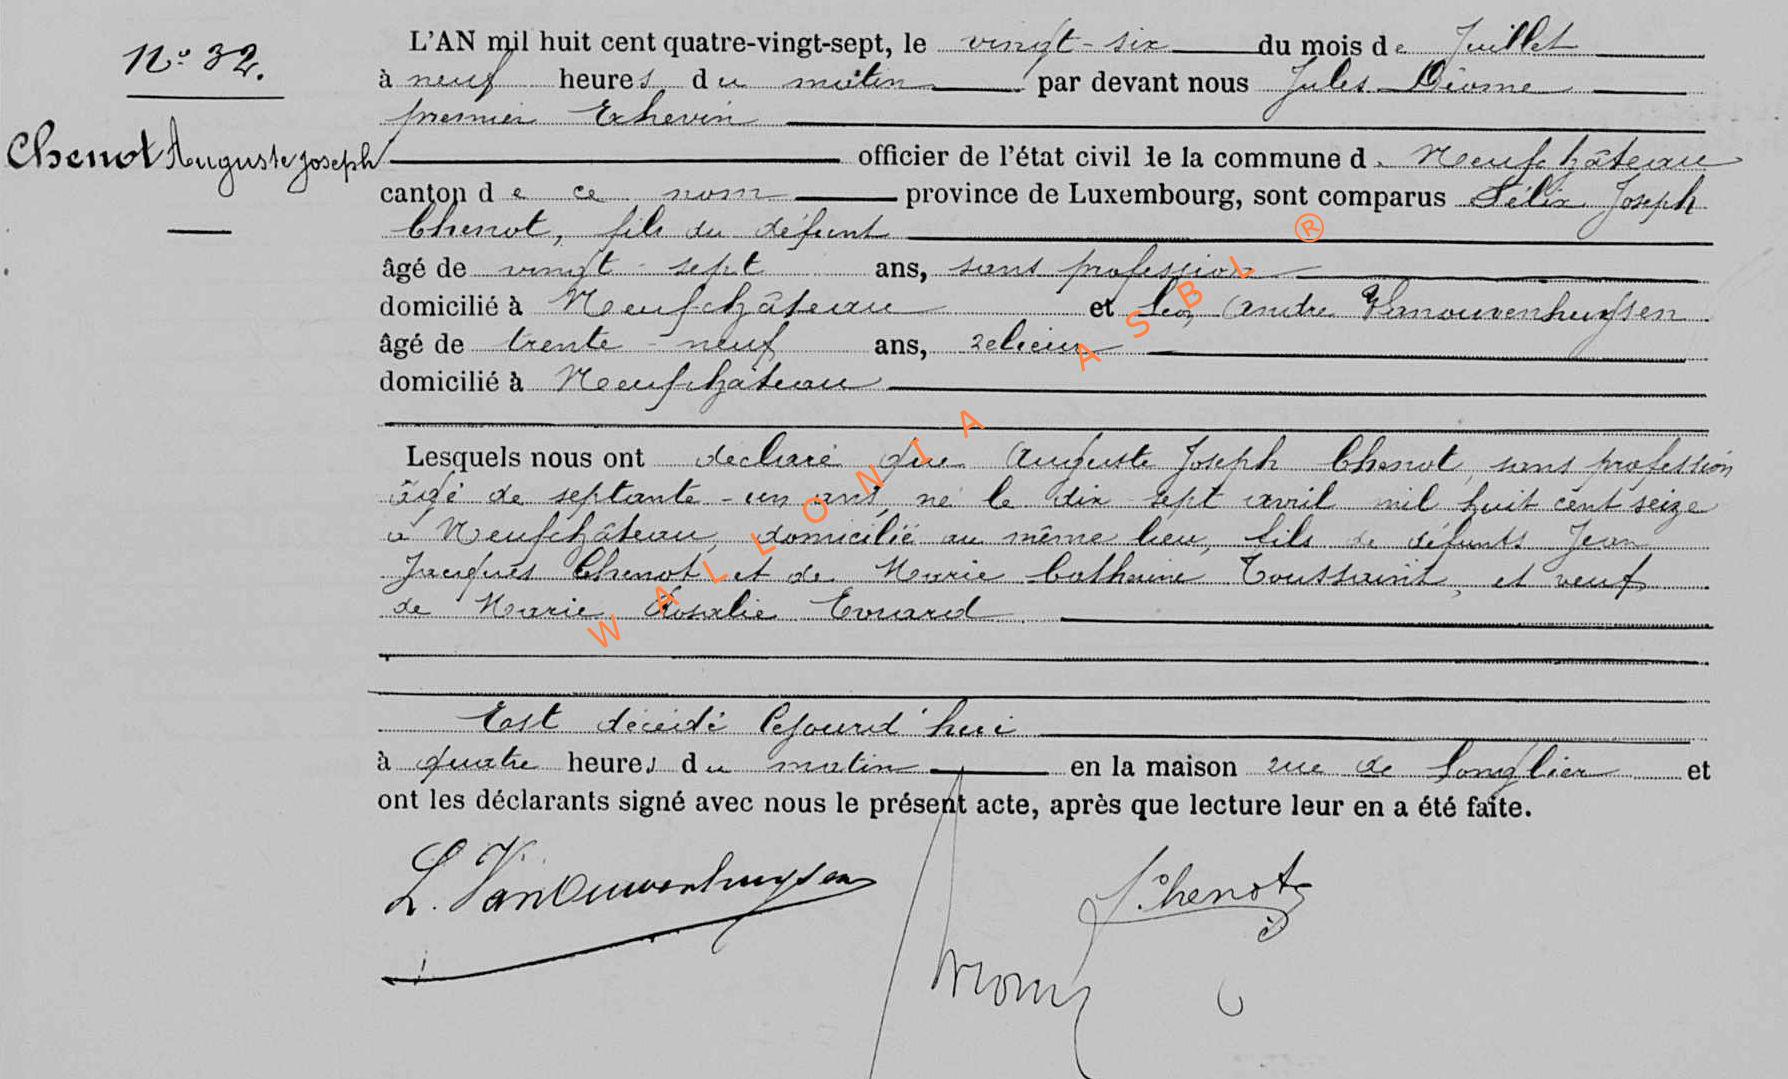 N° 32.
Chenot Auguste Joseph
L'AN mil huit cent quatre-vingt-sept, le vingt-six du mois de Juillet
à neuf heures du matin par devant nous Jules
premier Echevin
officier de l'état civil de la commune de Neufchâteau
canton de ce nom province de Luxembourg, sont comparus Félix Joseph
Chenot, fils du défunt
âgé de vingt-sept ans, sans profession
domicilié à Neufchâteau et Léon André Vanouwenhuysen
âgé de trente-neuf ans, relieur
domicilié à Neufchâteau
Lesquels nous ont déclaré que Auguste Joseph Chenot, sans profession
âgé de septante-un ans, né le dix-sept avril mil huit cent seize
à Neufchâteau, domicilié au même lieu, fils de défunts Jean
Jacques Chenot et de Marie Catherine Toussaint, et veuf
de Marie Rosalie Evrard
Est décédé cejourd'hui
à quatre heures du matin en la maison rue de Longlier et
ont les déclarants signé avec nous le présent acte, après que lecture leur en a été faite.
L. Vanouwenhuysen
Chenot
WALLONIA ASBL ®